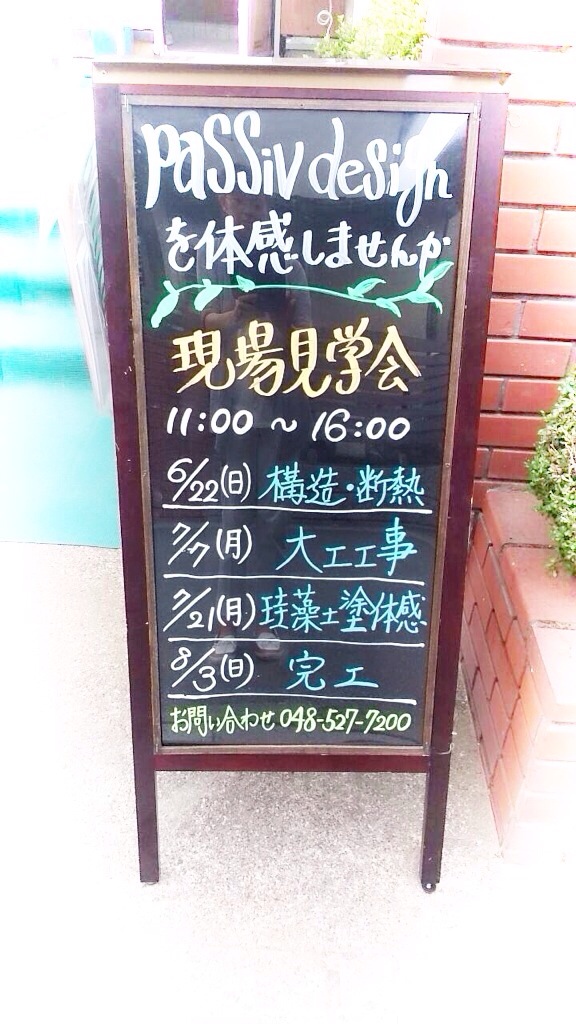 passiv design
を体感しませんか
現場見学会
11:00 ~ 16:00
6/22(日) 構造・断熱
7/7(月) 大工工事
7/21(月) 珪藻土塗体感
8/3(日) 完工
お問い合わせ 048-527-7200